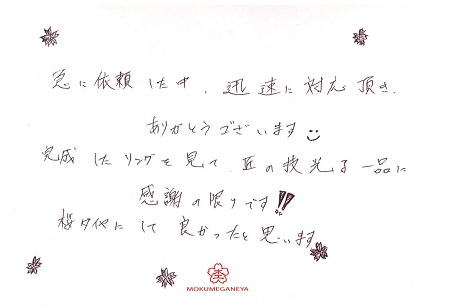 急に依頼した中、迅速に対応頂き、
ありがとうございます
完成したリングを見て、匠の技光る一品に
感謝の限りです!!
にして良かったと思います
MOKUMEGANEYA